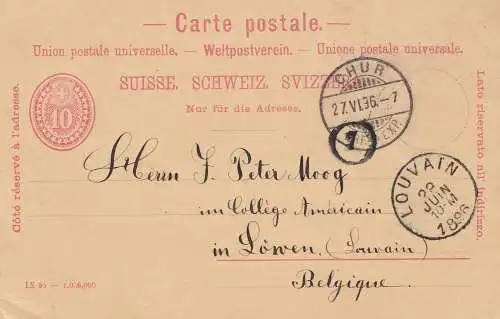 — Carte postale. —
Union postale universelle. — Weltpostverein. — Unione postale universale.
SUISSE. SCHWEIZ. SVIZZERA.
Nur für die Adresse.
Côté réservé à l'adresse.
Lato riservato all' indirizzo.
10
CHUR
27.VI.96.–7
EXP.
1
LOUVAIN
29
JUIN
10-M
1896
Herrn J. Peter Moog
im Collège Américain
in Löwen (Louvain)
Belgique.
IX 95 — 1,0